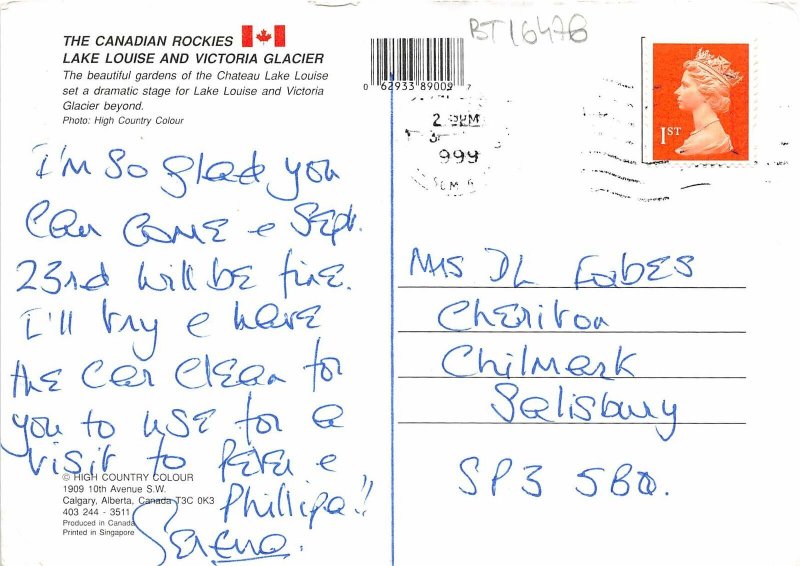 THE CANADIAN ROCKIES
LAKE LOUISE AND VICTORIA GLACIER
The beautiful gardens of the Chateau Lake Louise
set a dramatic stage for Lake Louise and Victoria
Glacier beyond.
Photo: High Country Colour
0 62933 89009 7
BT16476
1ST
I'm so glad you
can come e Sept.
23rd will be fine.
I'll try e have
the car clean for
you to use for a
visit to Peter e
Phillipa!!
Serena.
© HIGH COUNTRY COLOUR
1909 10th Avenue S.W.
Calgary, Alberta, Canada T3C 0K3
403 244 - 3511
Produced in Canada
Printed in Singapore
Mrs DL Forbes
Cheriton
Chilmark
Salisbury
SP3 5BQ.